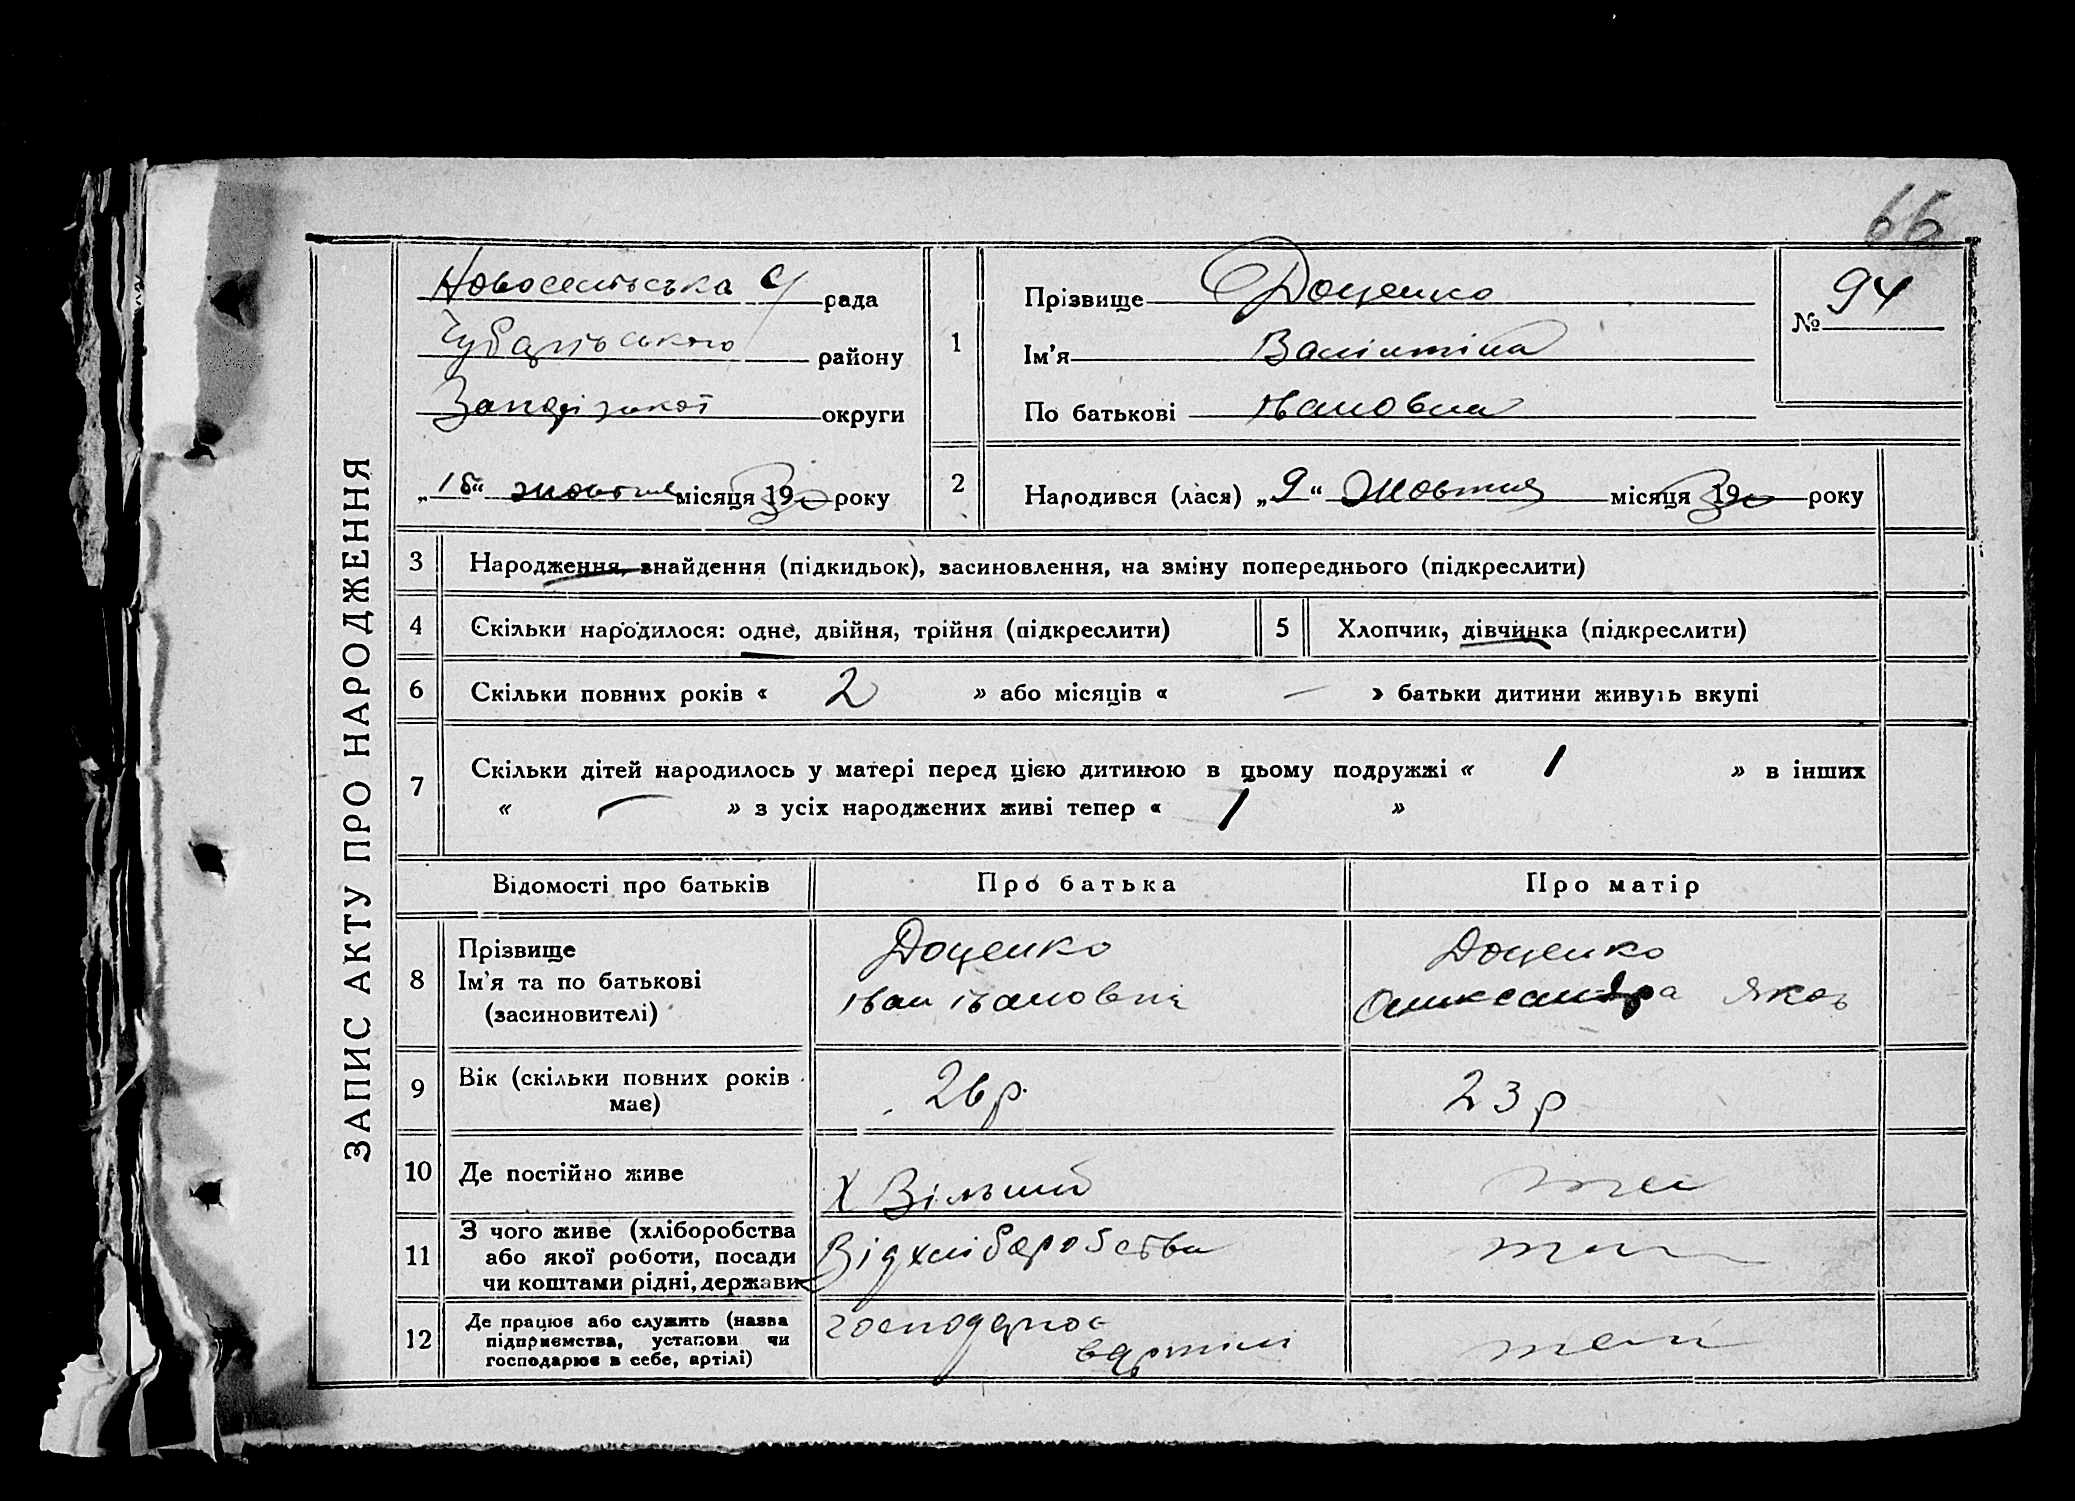 66
ЗАПИС АКТУ ПРО НАРОДЖЕННЯ
Новосельська с/рада
Чубарівського району
Запорізької округи
„18“ жовтня місяця 1930 року
1
Прізвище Доценко
Ім'я Валінтіна
По батькові Івановна
№ 94
2 Народився (лася) „9“ Жовтня місяця 1930 року
3 Народження, знайдення (підкидьок), засиновлення, на зміну попереднього (підкреслити)
4 Скільки народилося: одне, двійня, трійня (підкреслити) 5 Хлопчик, дівчинка (підкреслити)
6 Скільки повних років « 2 » або місяців « — » батьки дитини живуть вкупі
7 Скільки дітей народилось у матері перед цією дитиною в цьому подружжі « 1 » в інших
« — » з усіх народжених живі тепер « 1 »
Відомості про батьків Про батька Про матір
8 Прізвище Доценко Доценко
Ім'я та по батькові Іван Іванович Олександра Яков
(засиновителі)
9 Вік (скільки повних років має) 26 р. 23 р
10 Де постійно живе Х Вільний
11 З чого живе (хліборобства або якої роботи, посади чи коштами рідні, держави Від хліборобства
12 Де працює або служить (назва підприємства, установи чи господарює в себе, артілі) господарює в артілі